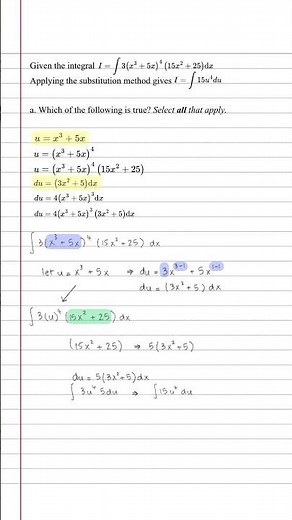 Given the integral I = ∫ 3(x³ + 5x)⁴ (15x² + 25)dx
Applying the substitution method gives I = ∫ 15u⁴du
a. Which of the following is true? Select all that apply.
u = x³ + 5x
u = (x³ + 5x)⁴
u = (x³ + 5x)⁴ (15x² + 25)
du = (3x² + 5)dx
du = 4(x³ + 5x)³dx
du = 4(x³ + 5x)³ (3x² + 5)dx
∫ 3(x³ + 5x)⁴ (15x² + 25) dx
let u = x³ + 5x ⇒ du = 3x³⁻¹ + 5x¹⁻¹
du = (3x² + 5) dx
∫ 3(u)⁴ (15x² + 25) dx
(15x² + 25) ⇒ 5(3x² + 5)
du = 5(3x² + 5) dx
∫ 3u⁴ 5du ⇒ ∫ 15u⁴ du